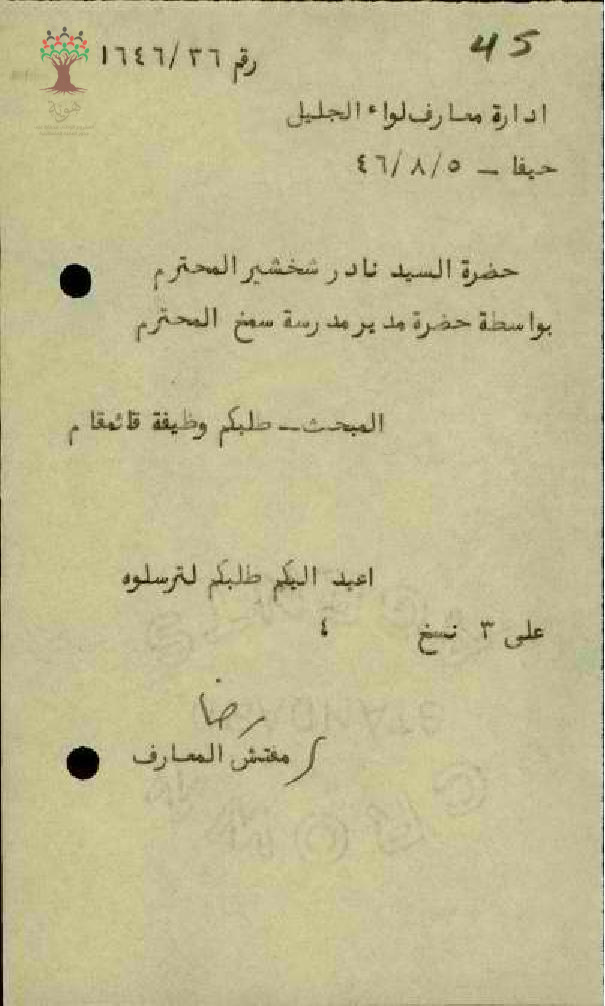 45
رقم ١٦٤٦/٣٦
هوية
ادارة معارف لواء الجليل
حيفا – ٤٦/٨/٥
حضرة السيد نادر شخشير المحترم
بواسطة حضرة مدير مدرسة سمخ المحترم
المبحث – طلبكم وظيفة قائمقام
اعيد اليكم طلبكم لترسلوه
على ٣ نسخ ٤
رضا
مفتش المعارف
STANDARD